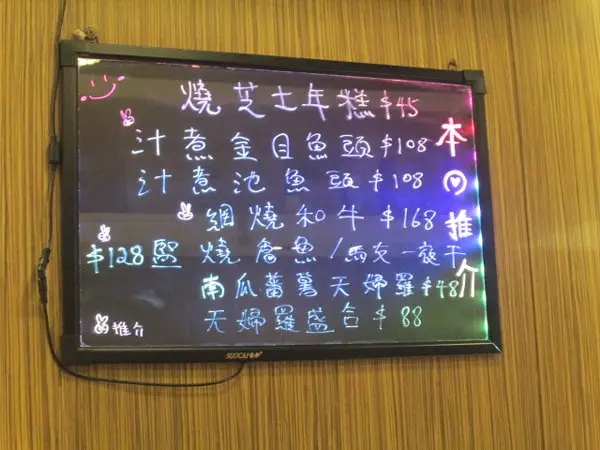 燒芝士年糕$45
汁煮金目魚頭$108
汁煮池魚頭$108
網燒和牛 $168
$128 燒倉魚/馬友一夜干
南瓜蕃薯天婦羅$48
天婦羅盛合$88
推介
本日推介